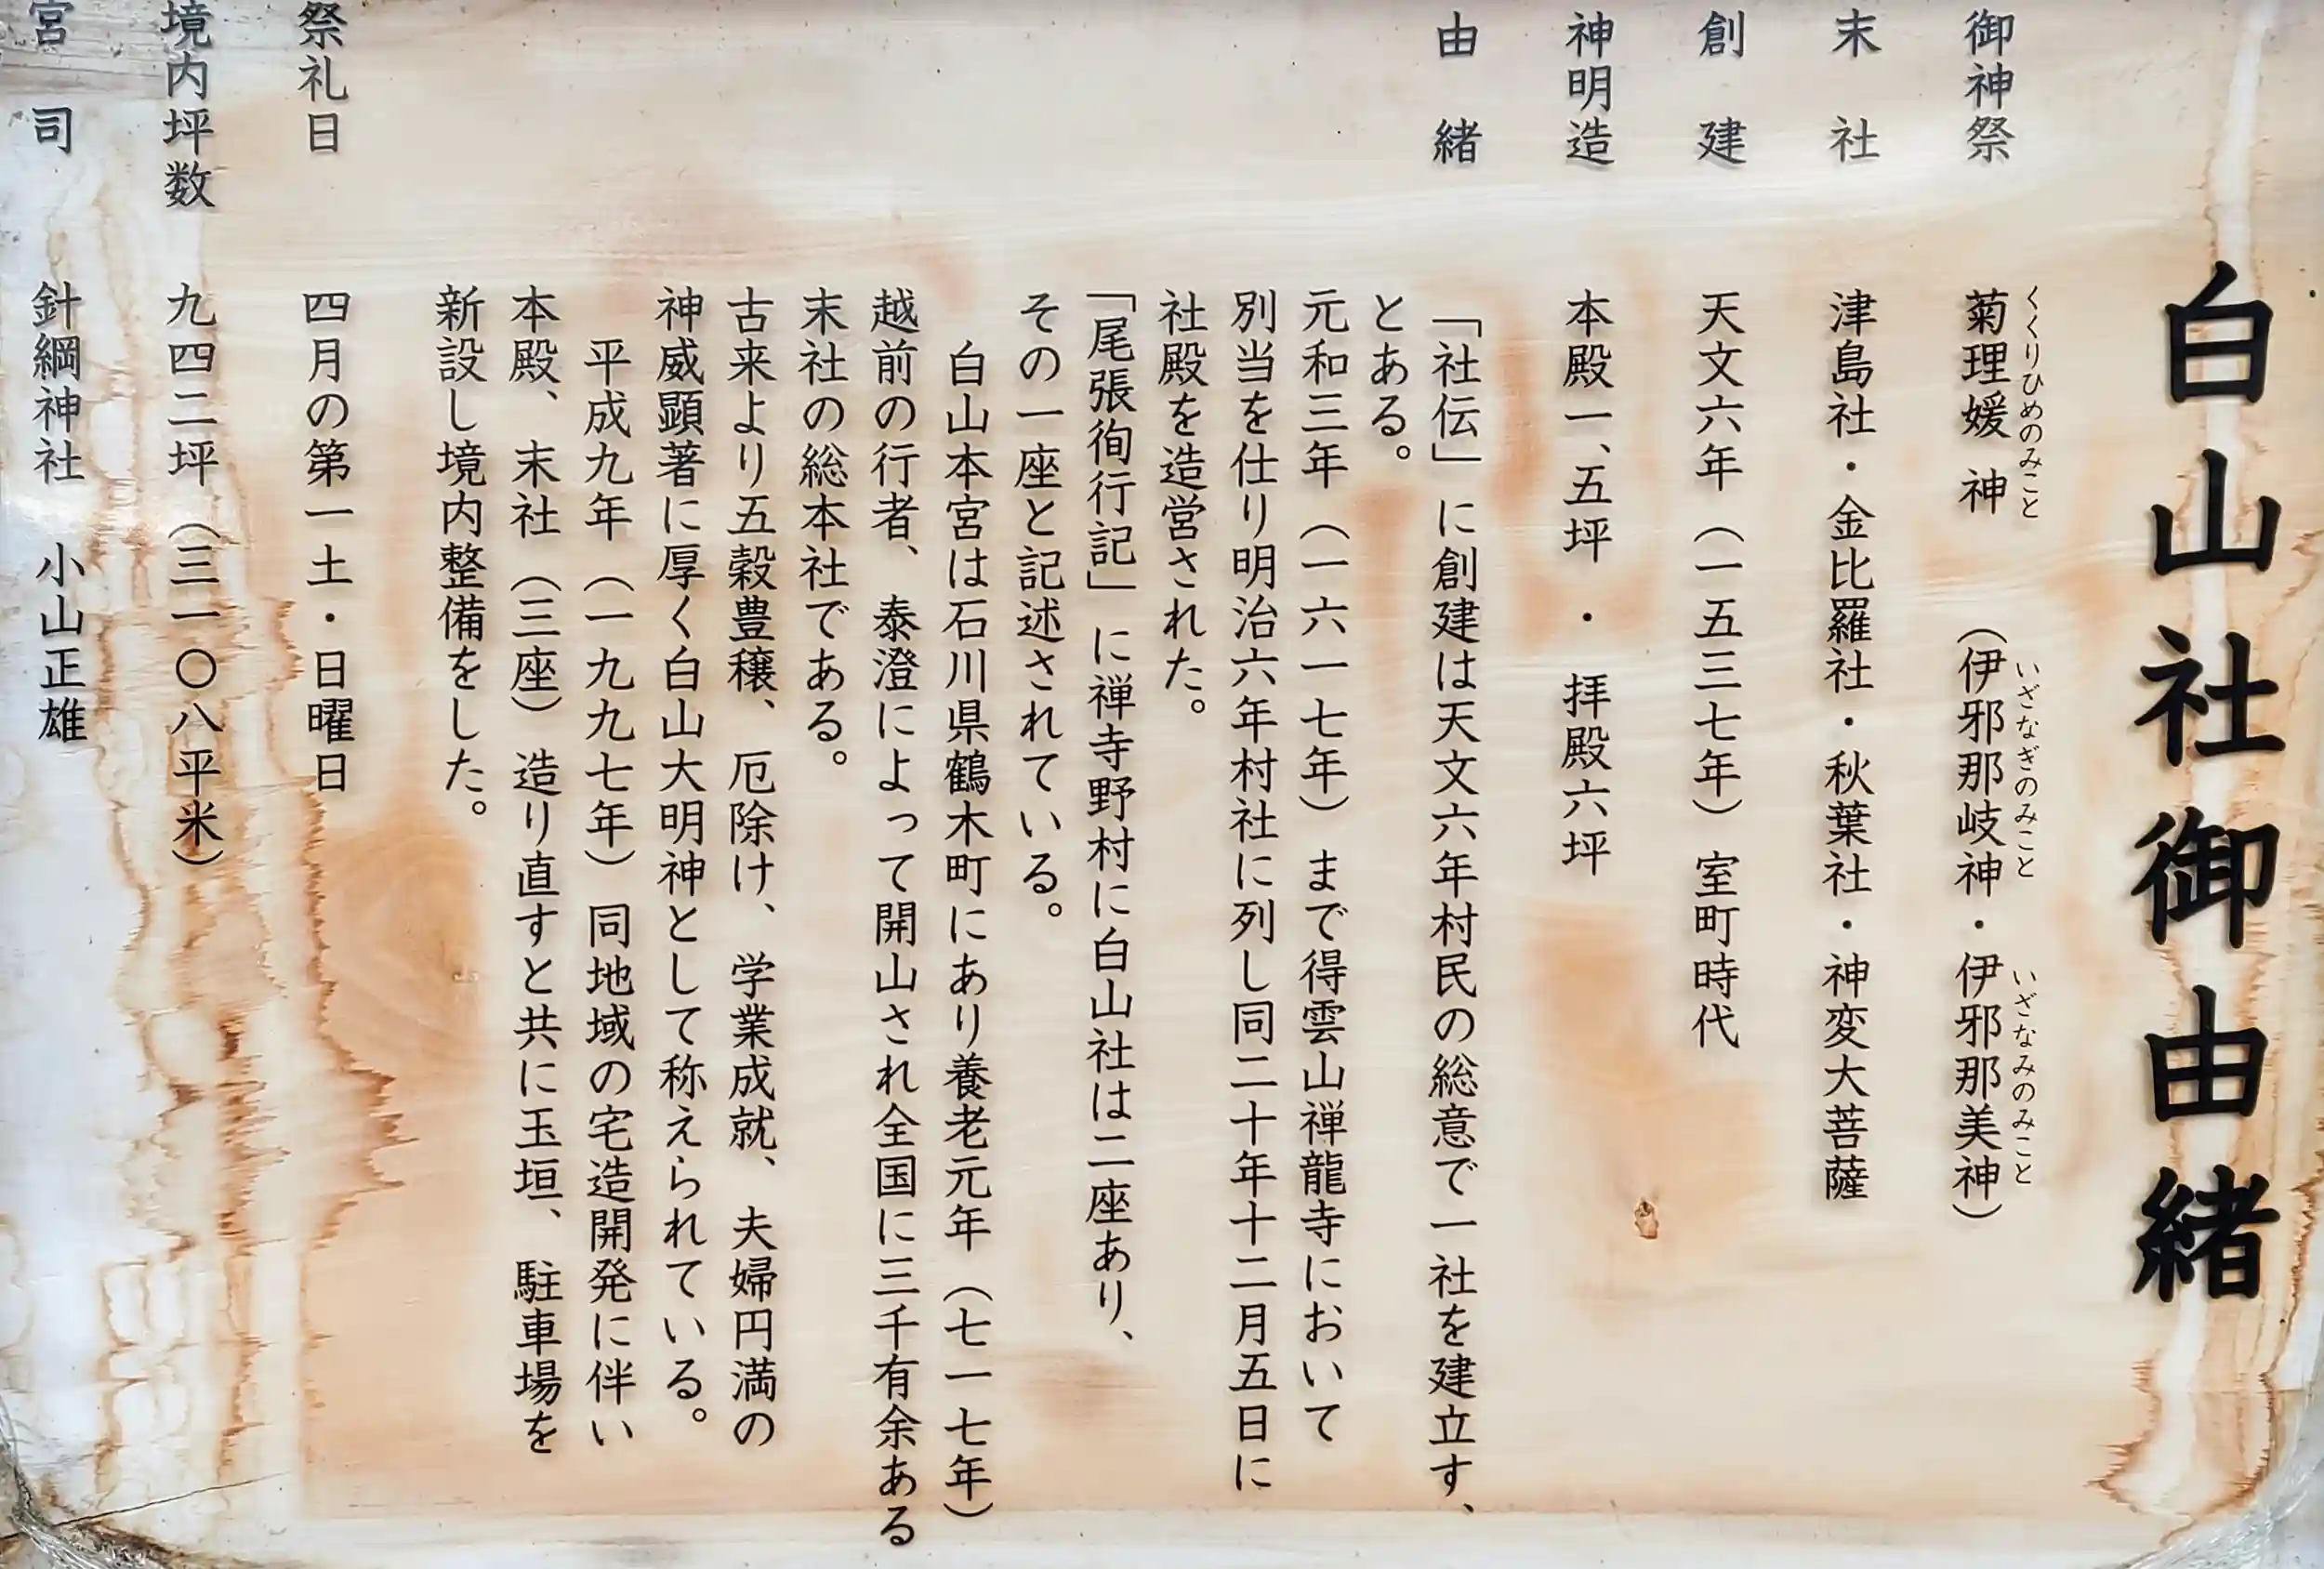 白山社御由緒
御神祭 菊理媛 神 （伊邪那岐神・伊邪那美神）
くくりひめのみこと いざなぎのみこと いざなみのみこと
末 社 津島社・金比羅社・秋葉社・神変大菩薩
創 建 天文六年（一五三七年）室町時代
神明造 本殿一、五坪 ・ 拝殿六坪
由 緒 「社伝」に創建は天文六年村民の総意で一社を建立す、
とある。
元和三年（一六一七年）まで得雲山禅龍寺において
別当を仕り明治六年村社に列し同二十年十二月五日に
社殿を造営された。
「尾張徇行記」に禅寺野村に白山社は二座あり、
その一座と記述されている。
白山本宮は石川県鶴木町にあり養老元年（七一七年）
越前の行者、泰澄によって開山され全国に三千有余ある
末社の総本社である。
古来より五穀豊穣、厄除け、学業成就、夫婦円満の
神威顕著に厚く白山大明神として称えられている。
平成九年（一九九七年）同地域の宅造開発に伴い
本殿、末社（三座）造り直すと共に玉垣、駐車場を
新設し境内整備をした。
祭礼日 四月の第一土・日曜日
境内坪数 九四二坪（三一〇八平米）
宮 司 針綱神社 小山正雄